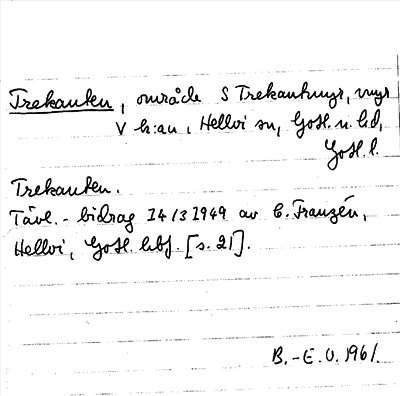 Trekanten, område S Trekantmyr, myr
V k:an, Hellvi sn, Gotl. n. hd,
Gotl. l.
Trekanten.
Tävl.-bidrag 14/3 1949 av E. Franzén,
Hellvi, Gotl. hbf. [s. 21].
B.-E. O. 1961.